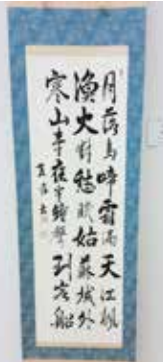 月落烏啼霜滿天江楓
漁火對愁眠姑蘇城外
寒山寺夜半鐘聲到客船